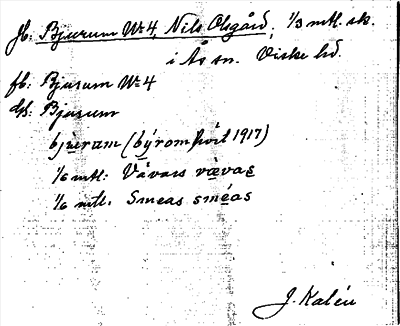 jb: Bjurum No 4, Nils Olsgård, 1/3 mtl. sk.
i Ås sn. Viske hd.
fb: Bjurum No 4
ds: Bjurum
1/6 mtl: Vävars vävas
1/6 mtl. Smeas sméas
J. Kalén